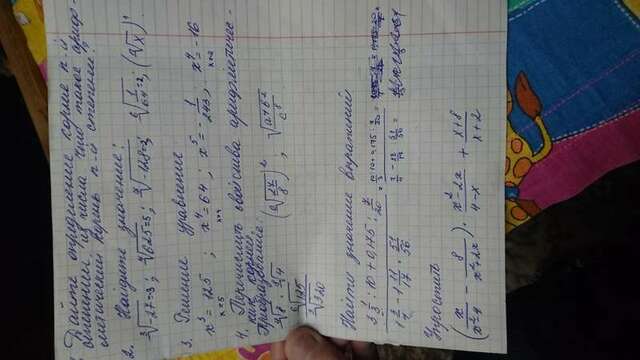 1. Дайте определение корня n-й
степени из числа. Что такое ариф-
метический корень n-й степени?
2. Найдите значение:
∛-27=-3; ⁴√625=5; ⁷√-128=2; ⁶√1/64=2; (ⁿ√x)
3. Решение уравнение
x³=125 ; x⁴=64 ; x⁵=-1/243, x⁴=-16
x=5
4. Перечислить свойства арифметичес-
ких корней.
Преобразование:
⁴√8 · ⁴√4 (⁶√27/8)² ; √a⁴b²/c⁸
⁶√125
∛320
Найти значение выражений
3 1/3 : 10 + 0,175 : 7/20
1 3/4 - 1 11/17 · 51/56
Упростить
(x/x²-4 - 8/x²+2x) · x²-2x/4-x + x+8/x+2